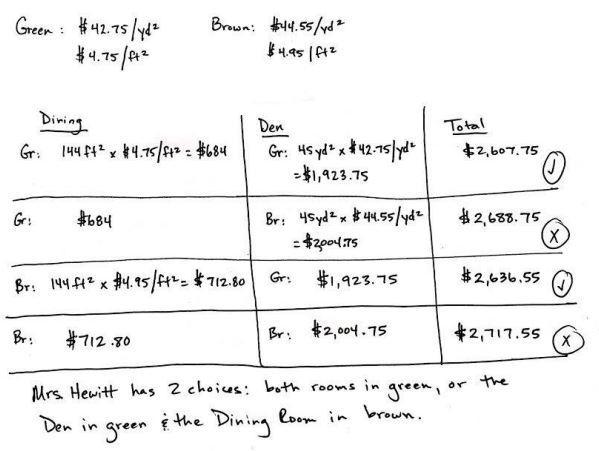 Green: $42.75/yd² Brown: $44.55/yd²
$4.75/ft² $4.95/ft²
Dining Den Total
Gr: 144 ft² x $4.75/ft² = $684 Gr: 45 yd² x $42.75/yd² $2,607.75 ✓
= $1,923.75
Gr: $684 Br: 45yd² x $44.55/yd² $2,688.75 X
= $2004.75
Br: 144 ft² x $4.95/ft² = $712.80 Gr: $1,923.75 $2,636.55 ✓
Br: $712.80 Br: $2,004.75 $2,717.55 X
Mrs. Hewitt has 2 choices: both rooms in green, or the
Den in green & the Dining Room in brown.